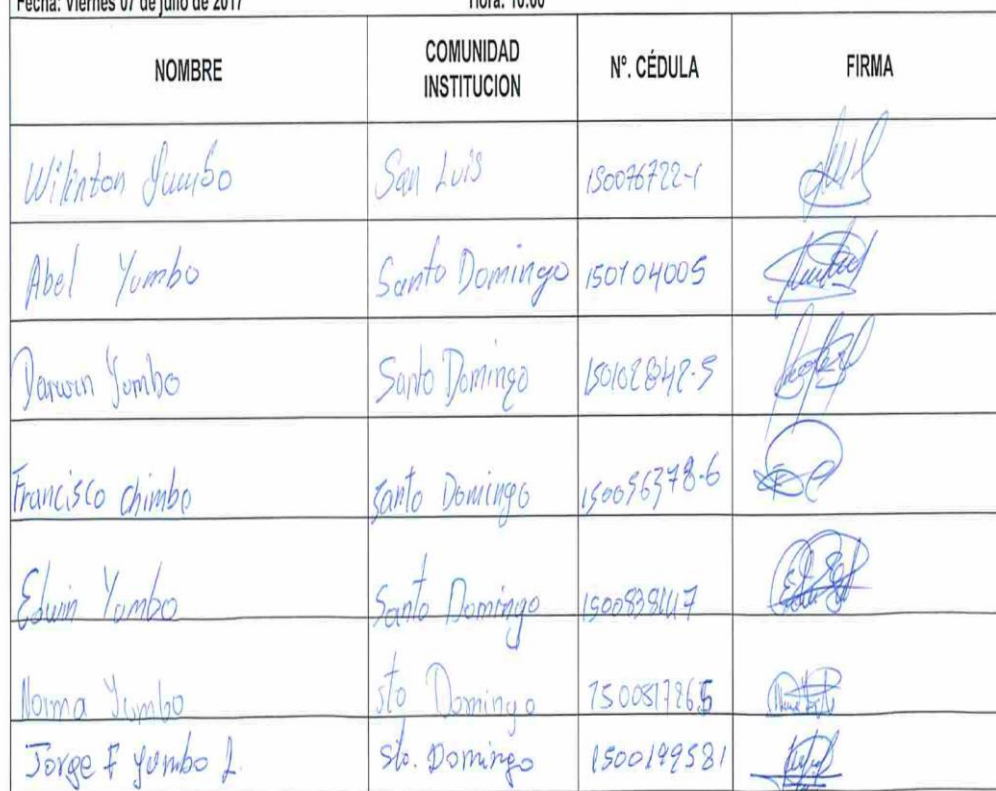 Fecha: Viernes 07 de julio de 2017 Hora: 10:00
NOMBRE COMUNIDAD INSTITUCION Nº. CÉDULA FIRMA
Wilinton Yumbo San Luis 150076722-1
Abel Yumbo Santo Domingo 150104005
Darwin Yumbo Santo Domingo 150102842-5
Francisco Chimbo Santo Domingo 150056378-6
Edwin Yumbo Santo Domingo
Norma Yumbo sto Domingo
Jorge F Yumbo L. sto. Domingo 1500199581